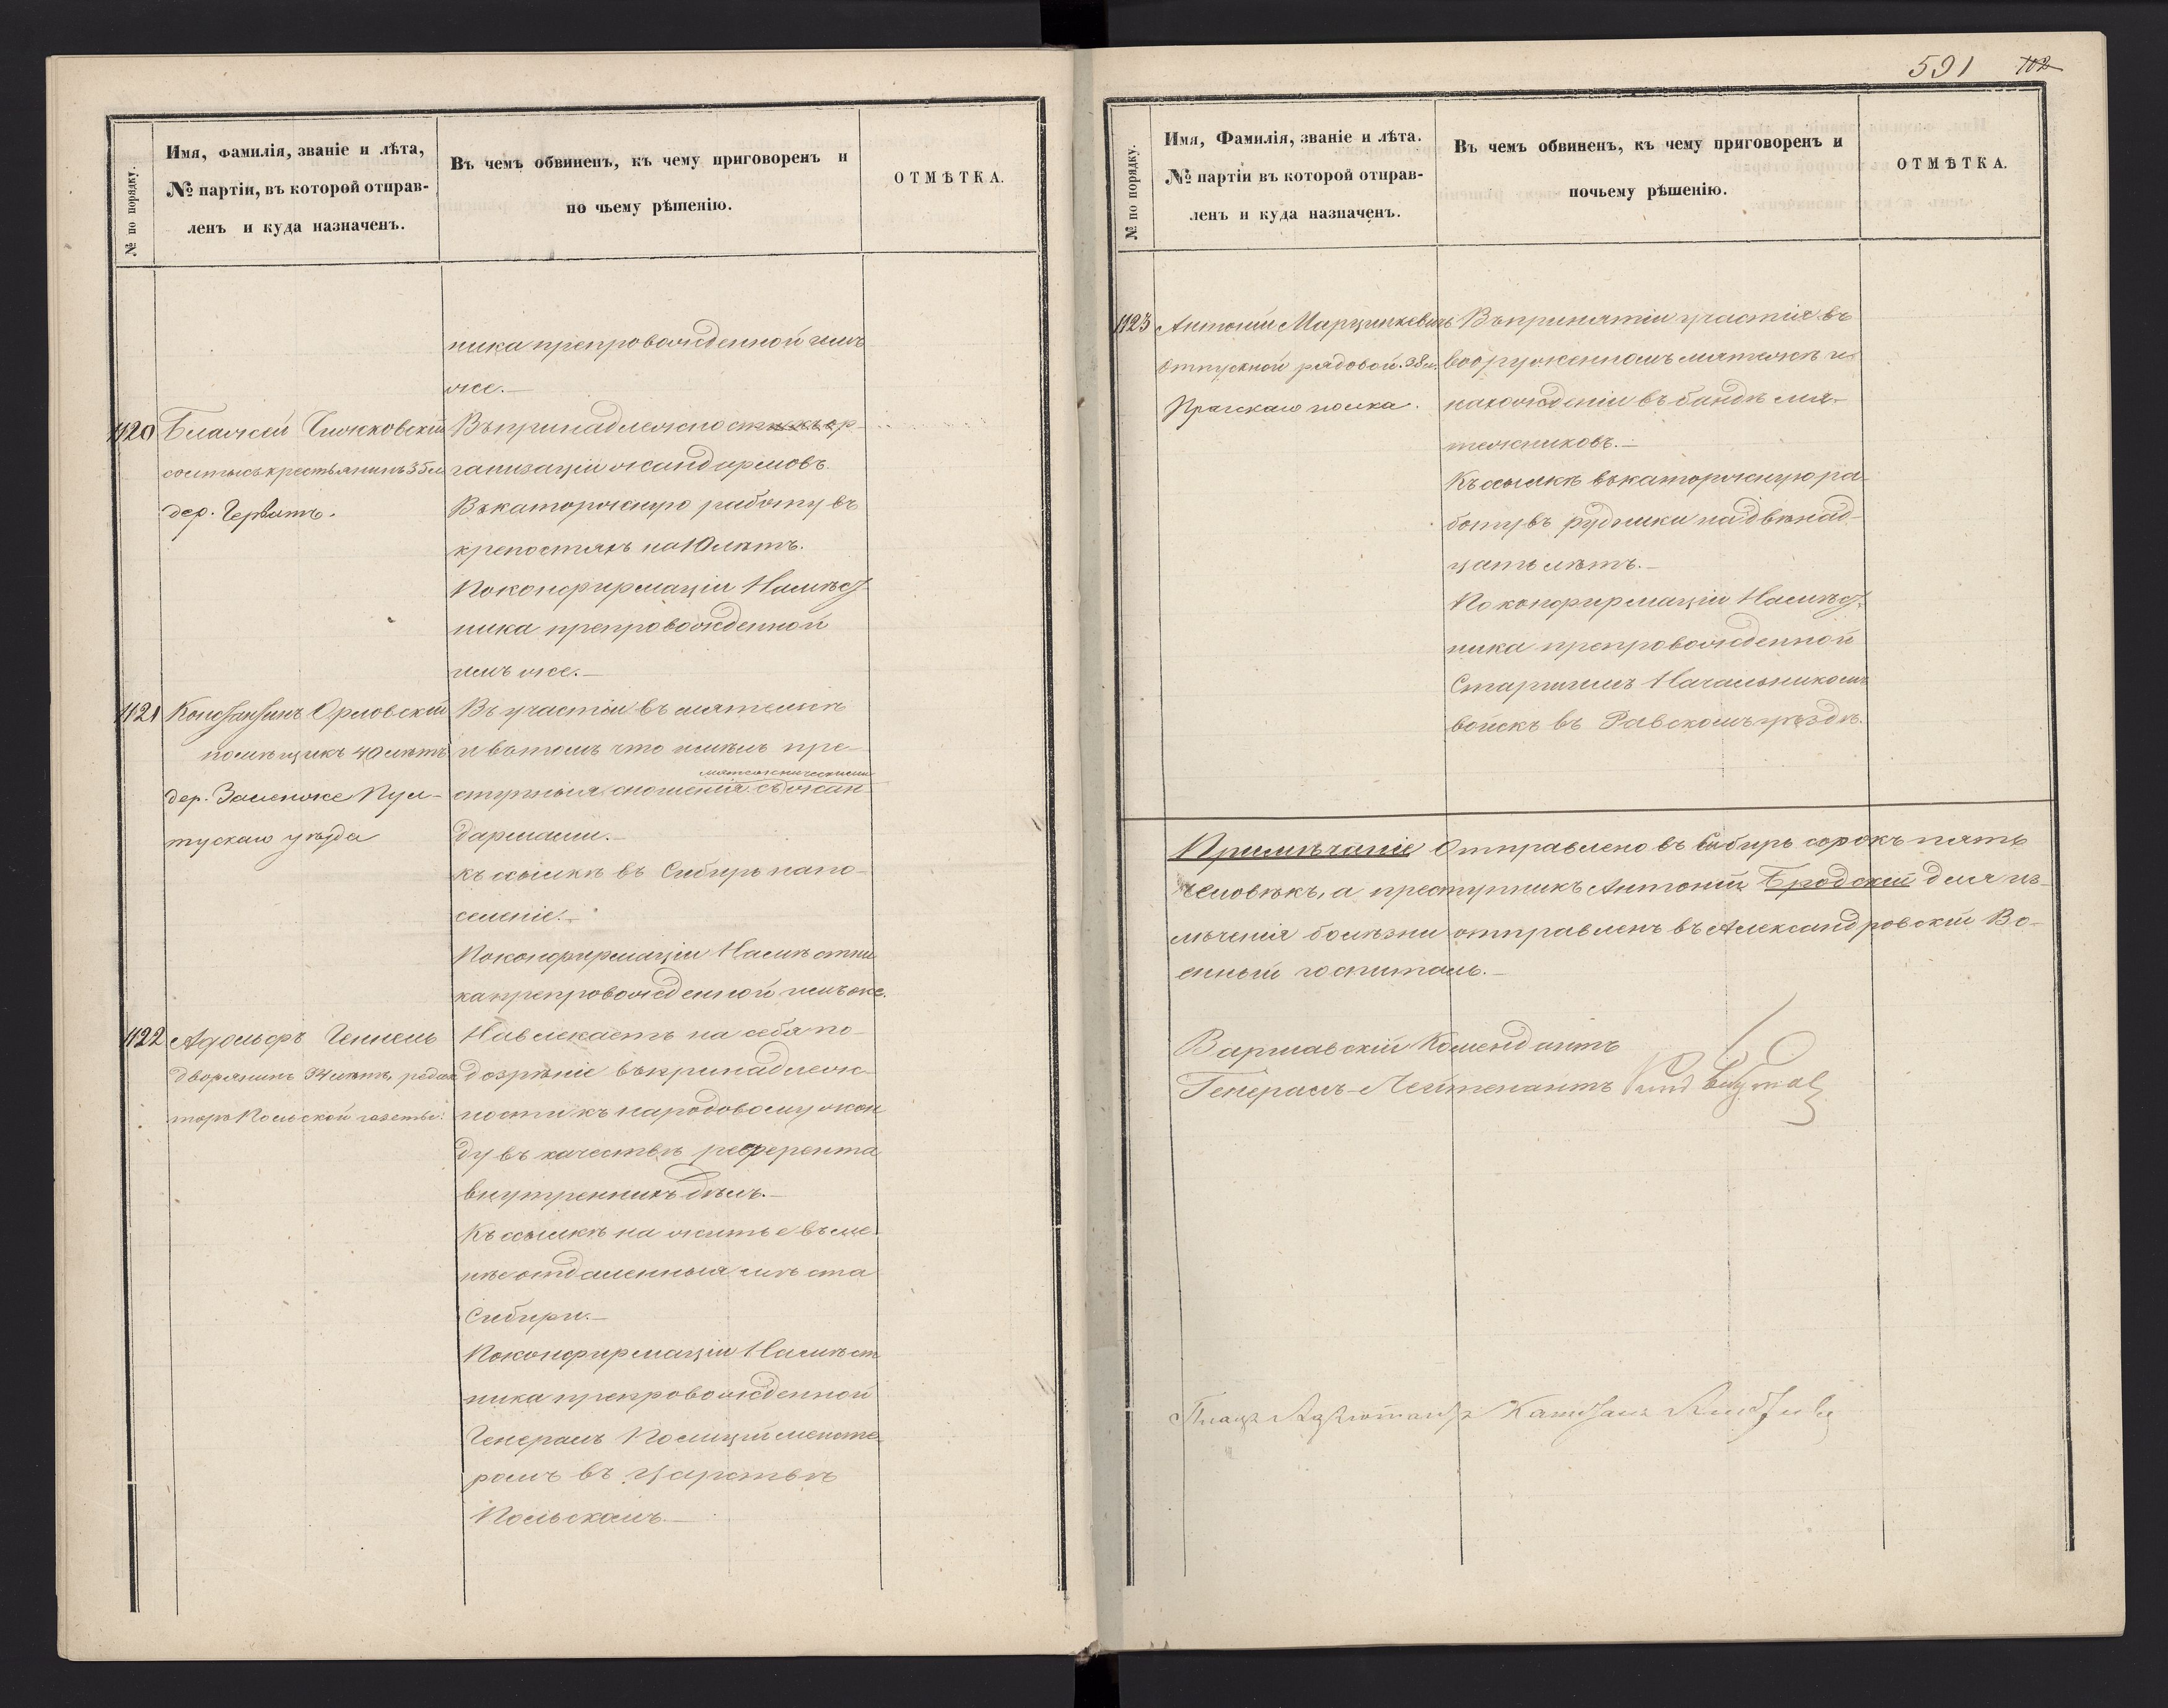 № по порядку.
Имя, фамилія, званіе и лѣта,
№ партіи, въ которой отправ-
ленъ и куда назначенъ.
Въ чемъ обвиненъ, къ чему приговоренъ и
по чьему рѣшенію.
ОТМѢТКА.
ника препровожденной имъ
же.—
1120
Блажей
крестьянинъ 35 л
дер.
Въ принадлежности къ ор-
ганизаціи жандармовъ.
Въ каторжную работу въ
крепостяхъ на 10 лѣтъ.
По конфирмаціи Намѣст-
ника препровожденной
имъ же.—
1121
Константинъ Орловскій
помѣщикъ 40 лѣтъ
дер. Пул-
тускаго уѣзда
Въ участіи въ мятежѣ
и въ томъ что имѣлъ пре-
мятежническими
ступныя сношенія съ жан-
дармами.—
къ ссылкѣ въ Сибирь на по-
селеніе.—
По конфирмаціи Намѣстни
ка препровожденной имъ же.
1122
Адольфъ
дворянинъ 34 лѣтъ, редак
торъ Польской газеты.
Навлекаетъ на себя по-
дозрѣніе въ принадлеж-
ности къ народовому жон
ду въ качествѣ референта
внутреннихъ дѣлъ.—
Къ ссылкѣ на житье въ ме-
нѣе отдаленныя мѣста
Сибири.—
По конфирмаціи Намѣст
ника препровожденной
Генералъ Полиціймейсте-
ромъ въ Царствѣ
Польскомъ.—
591 112
№ по порядку.
Имя, Фамилія, званіе и лѣта.
№ партіи въ которой отправ-
ленъ и куда назначенъ.
Въ чемъ обвиненъ, къ чему приговоренъ и
почьему рѣшенію.
ОТМѢТКА.
1123
Антоній Марцинкевичъ
отпускной рядовой. 38 л.
Пражскаго полка.
Въ принятіи участія въ
вооруженномъ мятежѣ и
нахожденіи въ бандѣ мя-
тежниковъ.—
Къ ссылкѣ въ каторжную ра-
боту въ рудники на двѣнад-
цать лѣтъ.—
По конфирмаціи Намѣст-
ника препровожденной
Старшимъ Начальникомъ
войскъ въ Равскомъ уѣздѣ.
Примѣчаніе Отправлено въ Сибирь сорокъ пять
человѣкъ, а преступникъ Антоній Бродскій для из-
лѣченія болѣзни отправленъ въ Александровскій Во-
енный госпиталь.—
Варшавскій Комендантъ
Генералъ-Лейтенантъ
Плацъ Адъютантъ Капитанъ